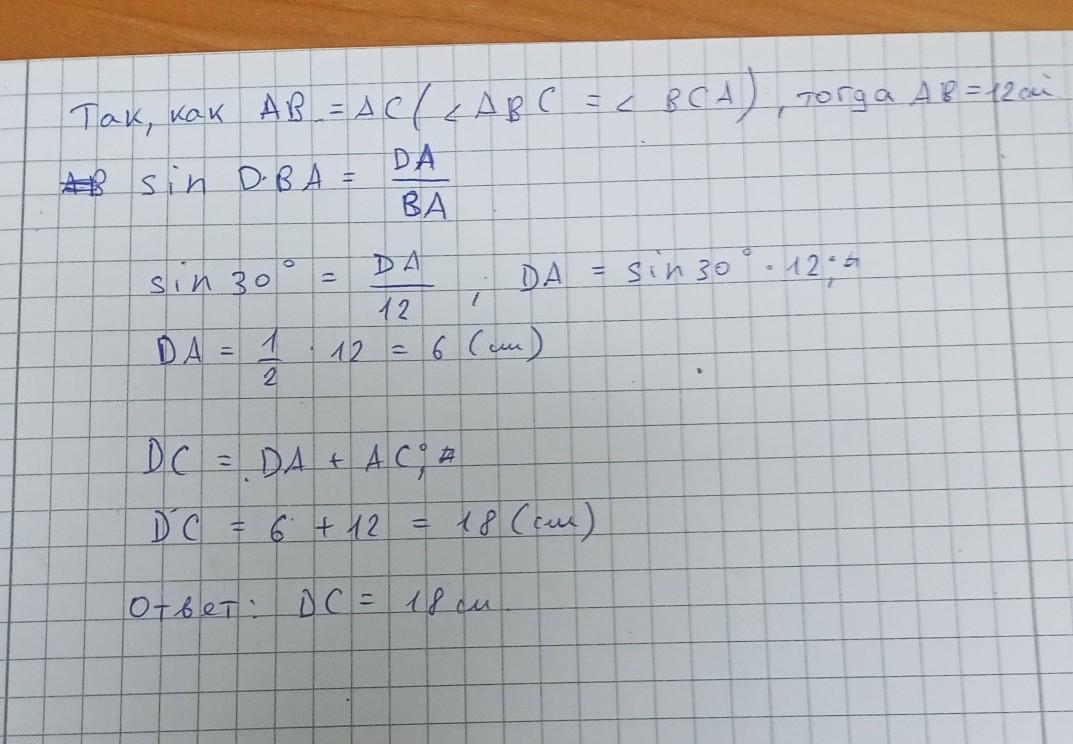 Так, как AB = AC (∠ABC = ∠BCA), тогда AB = 12 см
sin DBA = DA/BA
sin 30° = DA/12 ; DA = sin 30° · 12;
DA = 1/2 · 12 = 6 (см)
DC = DA + AC;
DC = 6 + 12 = 18 (см)
Ответ: DC = 18 см